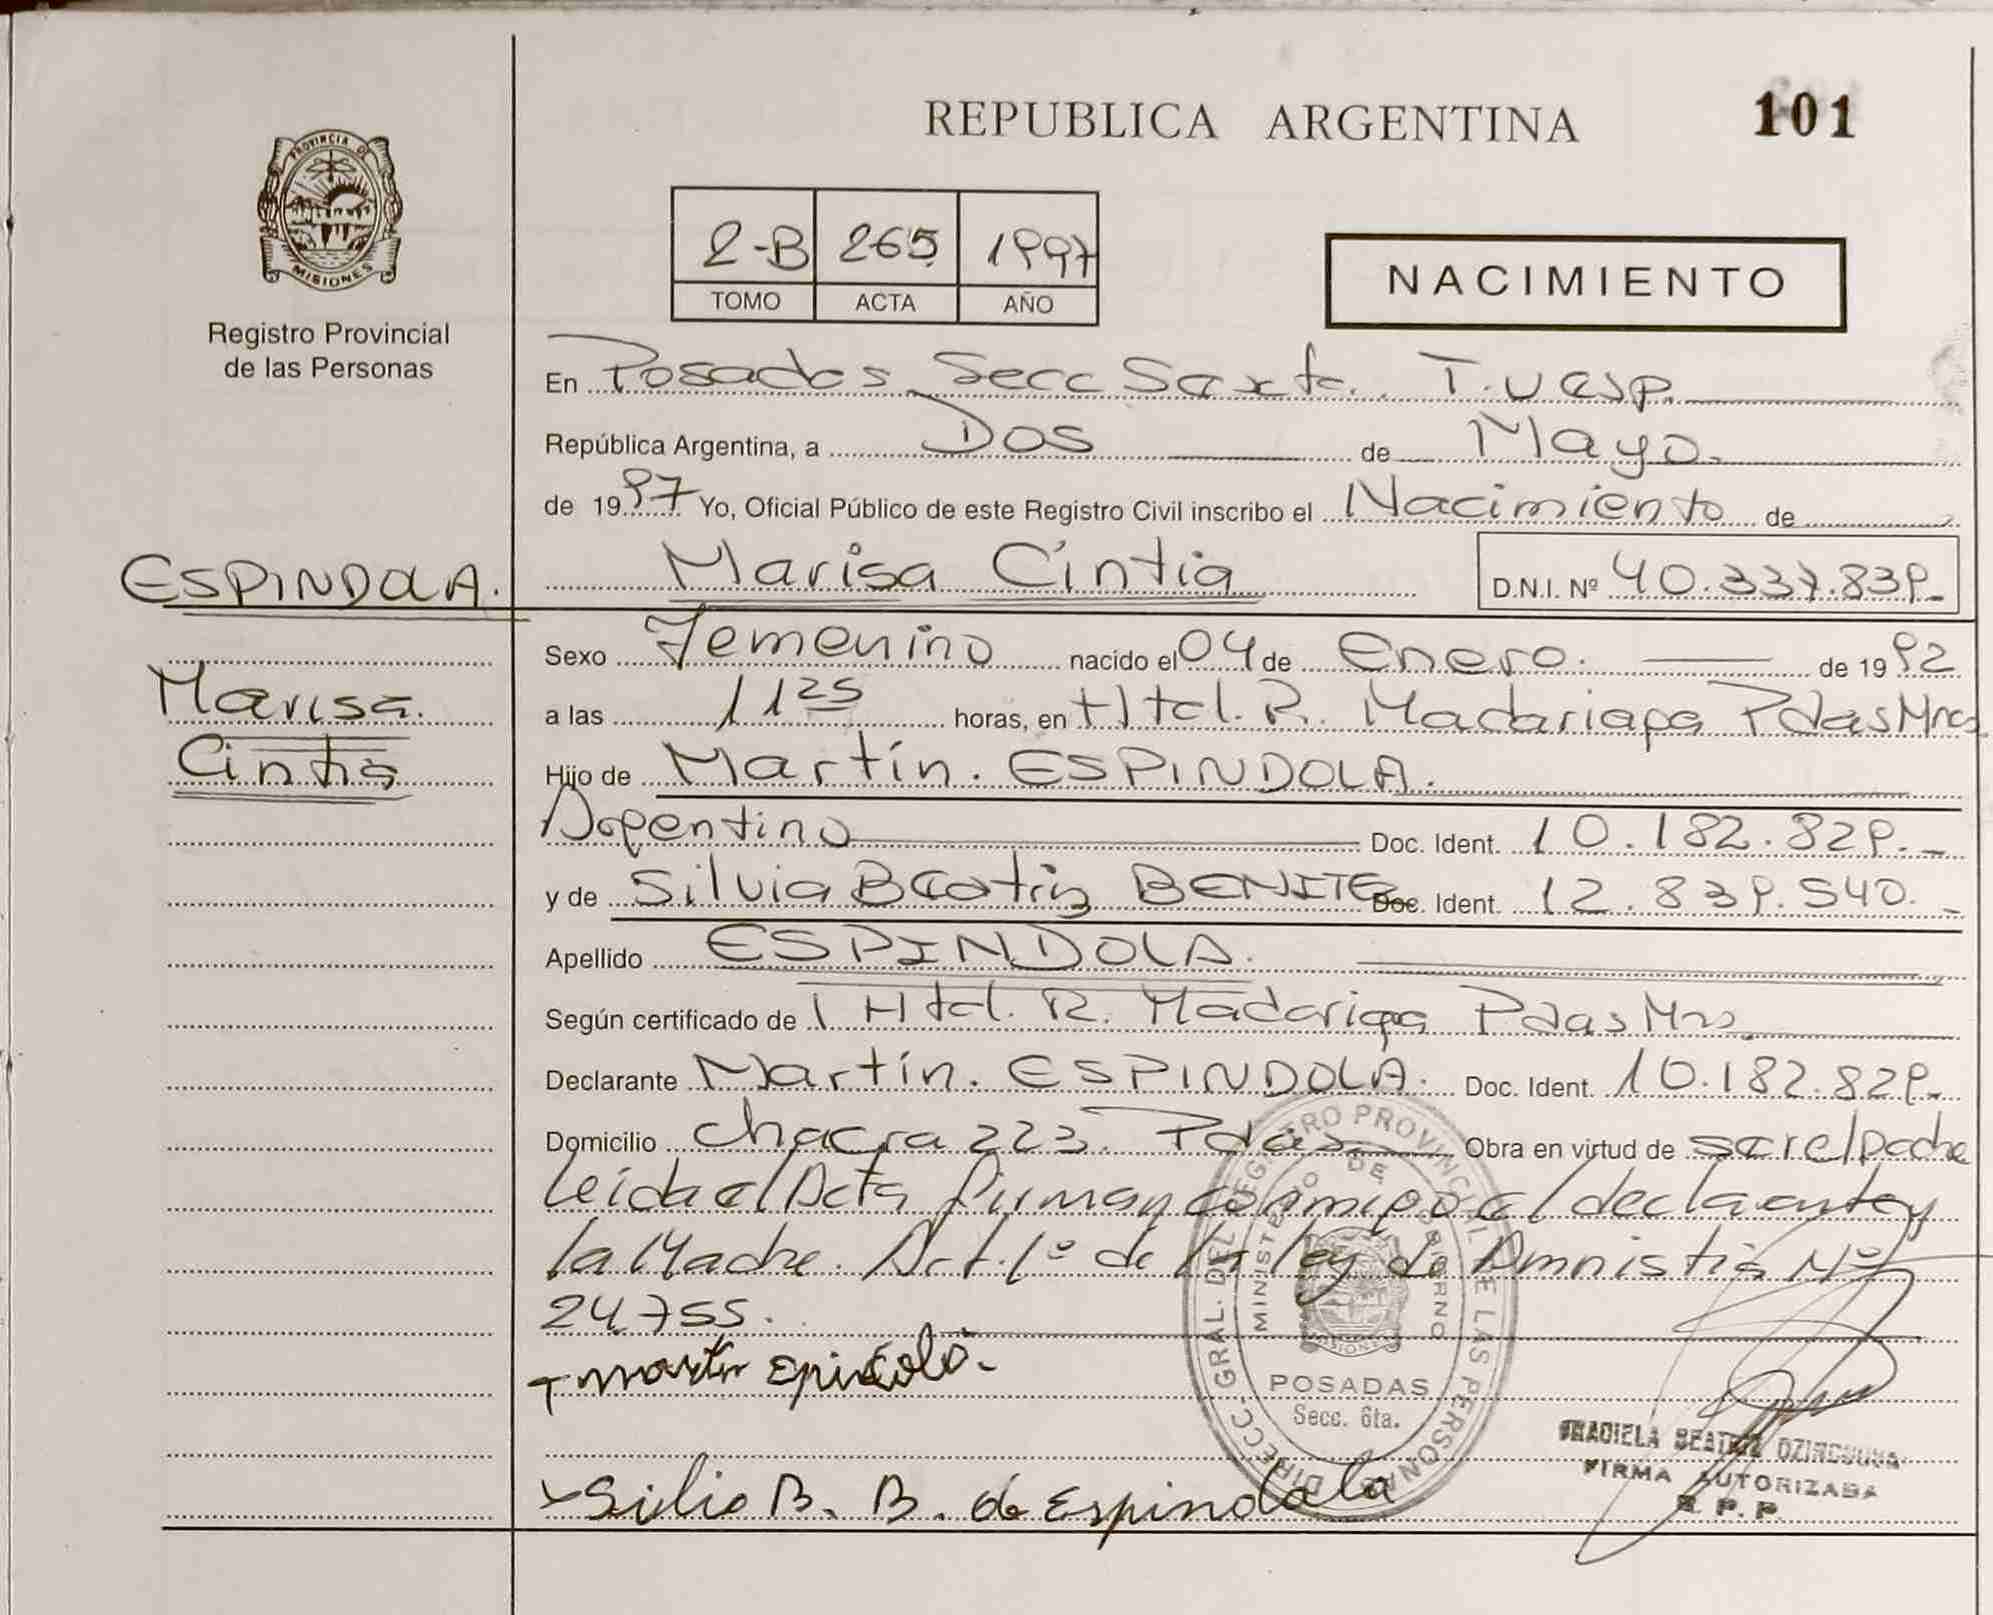 REPUBLICA ARGENTINA 101
PROVINCIA DE MISIONES
Registro Provincial
de las Personas
2-B 265 1997
TOMO ACTA AÑO
NACIMIENTO
En Posadas Secc Sexta.
República Argentina, a Dos de Mayo.
de 1997 Yo, Oficial Público de este Registro Civil inscribo el Nacimiento de
ESPINDOLA. Marisa Cintia D.N.I. Nº 40.337.839
Sexo Femenino nacido el 04 de Enero. de 1992
Marisa
Cintia
a las 11 25 horas, en Htal. R. Madariaga Pdas Mnes
Hijo de Martín. ESPINDOLA.
Argentino Doc. Ident. 10.182.829.
y de Silvia Beatriz BENITEZ Doc. Ident. 12.839.540.
Apellido ESPINDOLA.
Según certificado de Htal. R. Madariaga Pdas Mns.
Declarante Martín. ESPINDOLA. Doc. Ident. 10.182.829.
Domicilio Chacra 223. Pdas Obra en virtud de
Leida el Acta firman conmigo el declarante y
la Madre. Art. 1º de la ley de Amnistia Nº
24.755.
martin Epindola
Silvia B. B. de Espindola
DIRECC. GRAL. DEL REGISTRO PROVINCIAL DE LAS PERSONAS
MINISTERIO DE GOBIERNO
MISIONES
POSADAS
Secc. 6ta.
GRACIELA BEATRIZ
FIRMA AUTORIZADA
R. P. P.